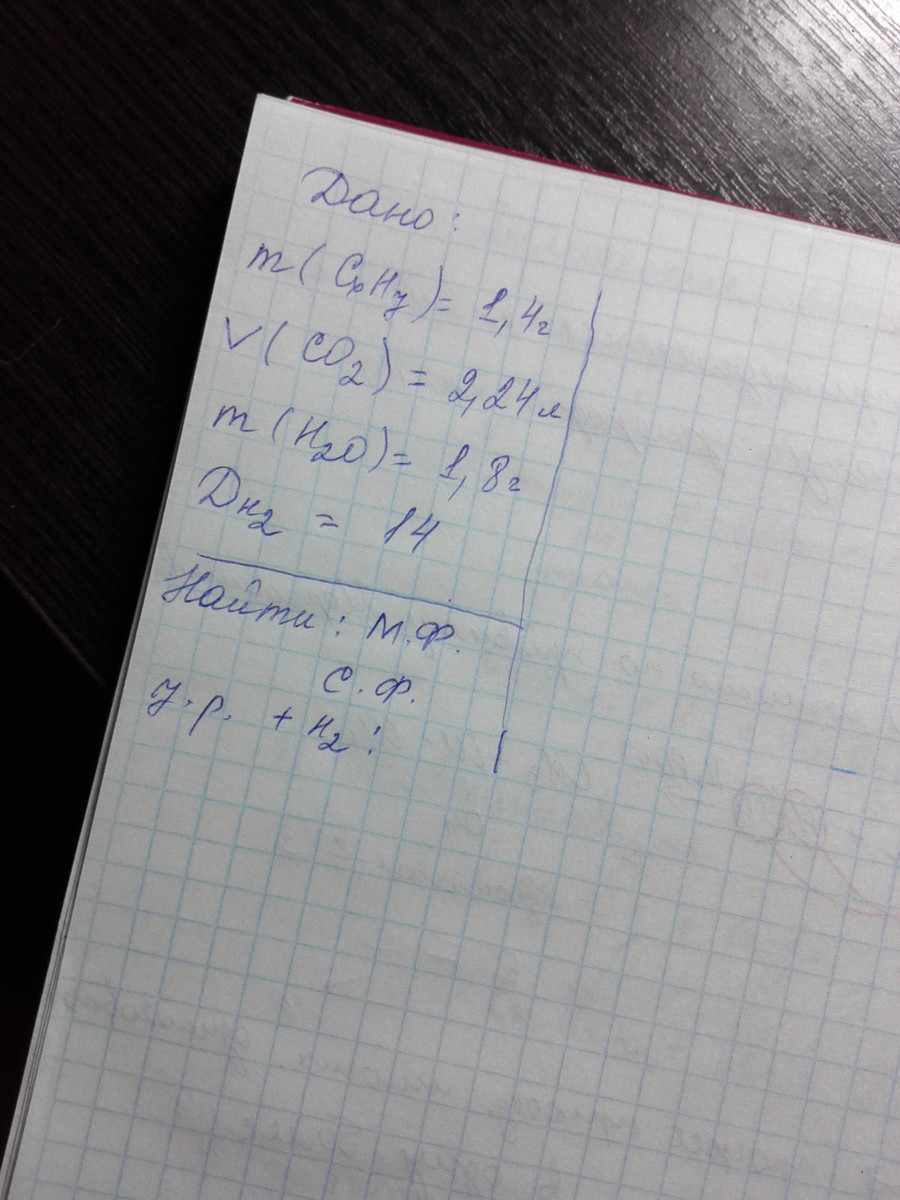 Дано:
m(CxHy) = 1,4г
V(CO2) = 2,24л
m(H2O) = 1,8г
DH2 = 14
Найти: М.Ф.
С.Ф.
У.р. + H2: